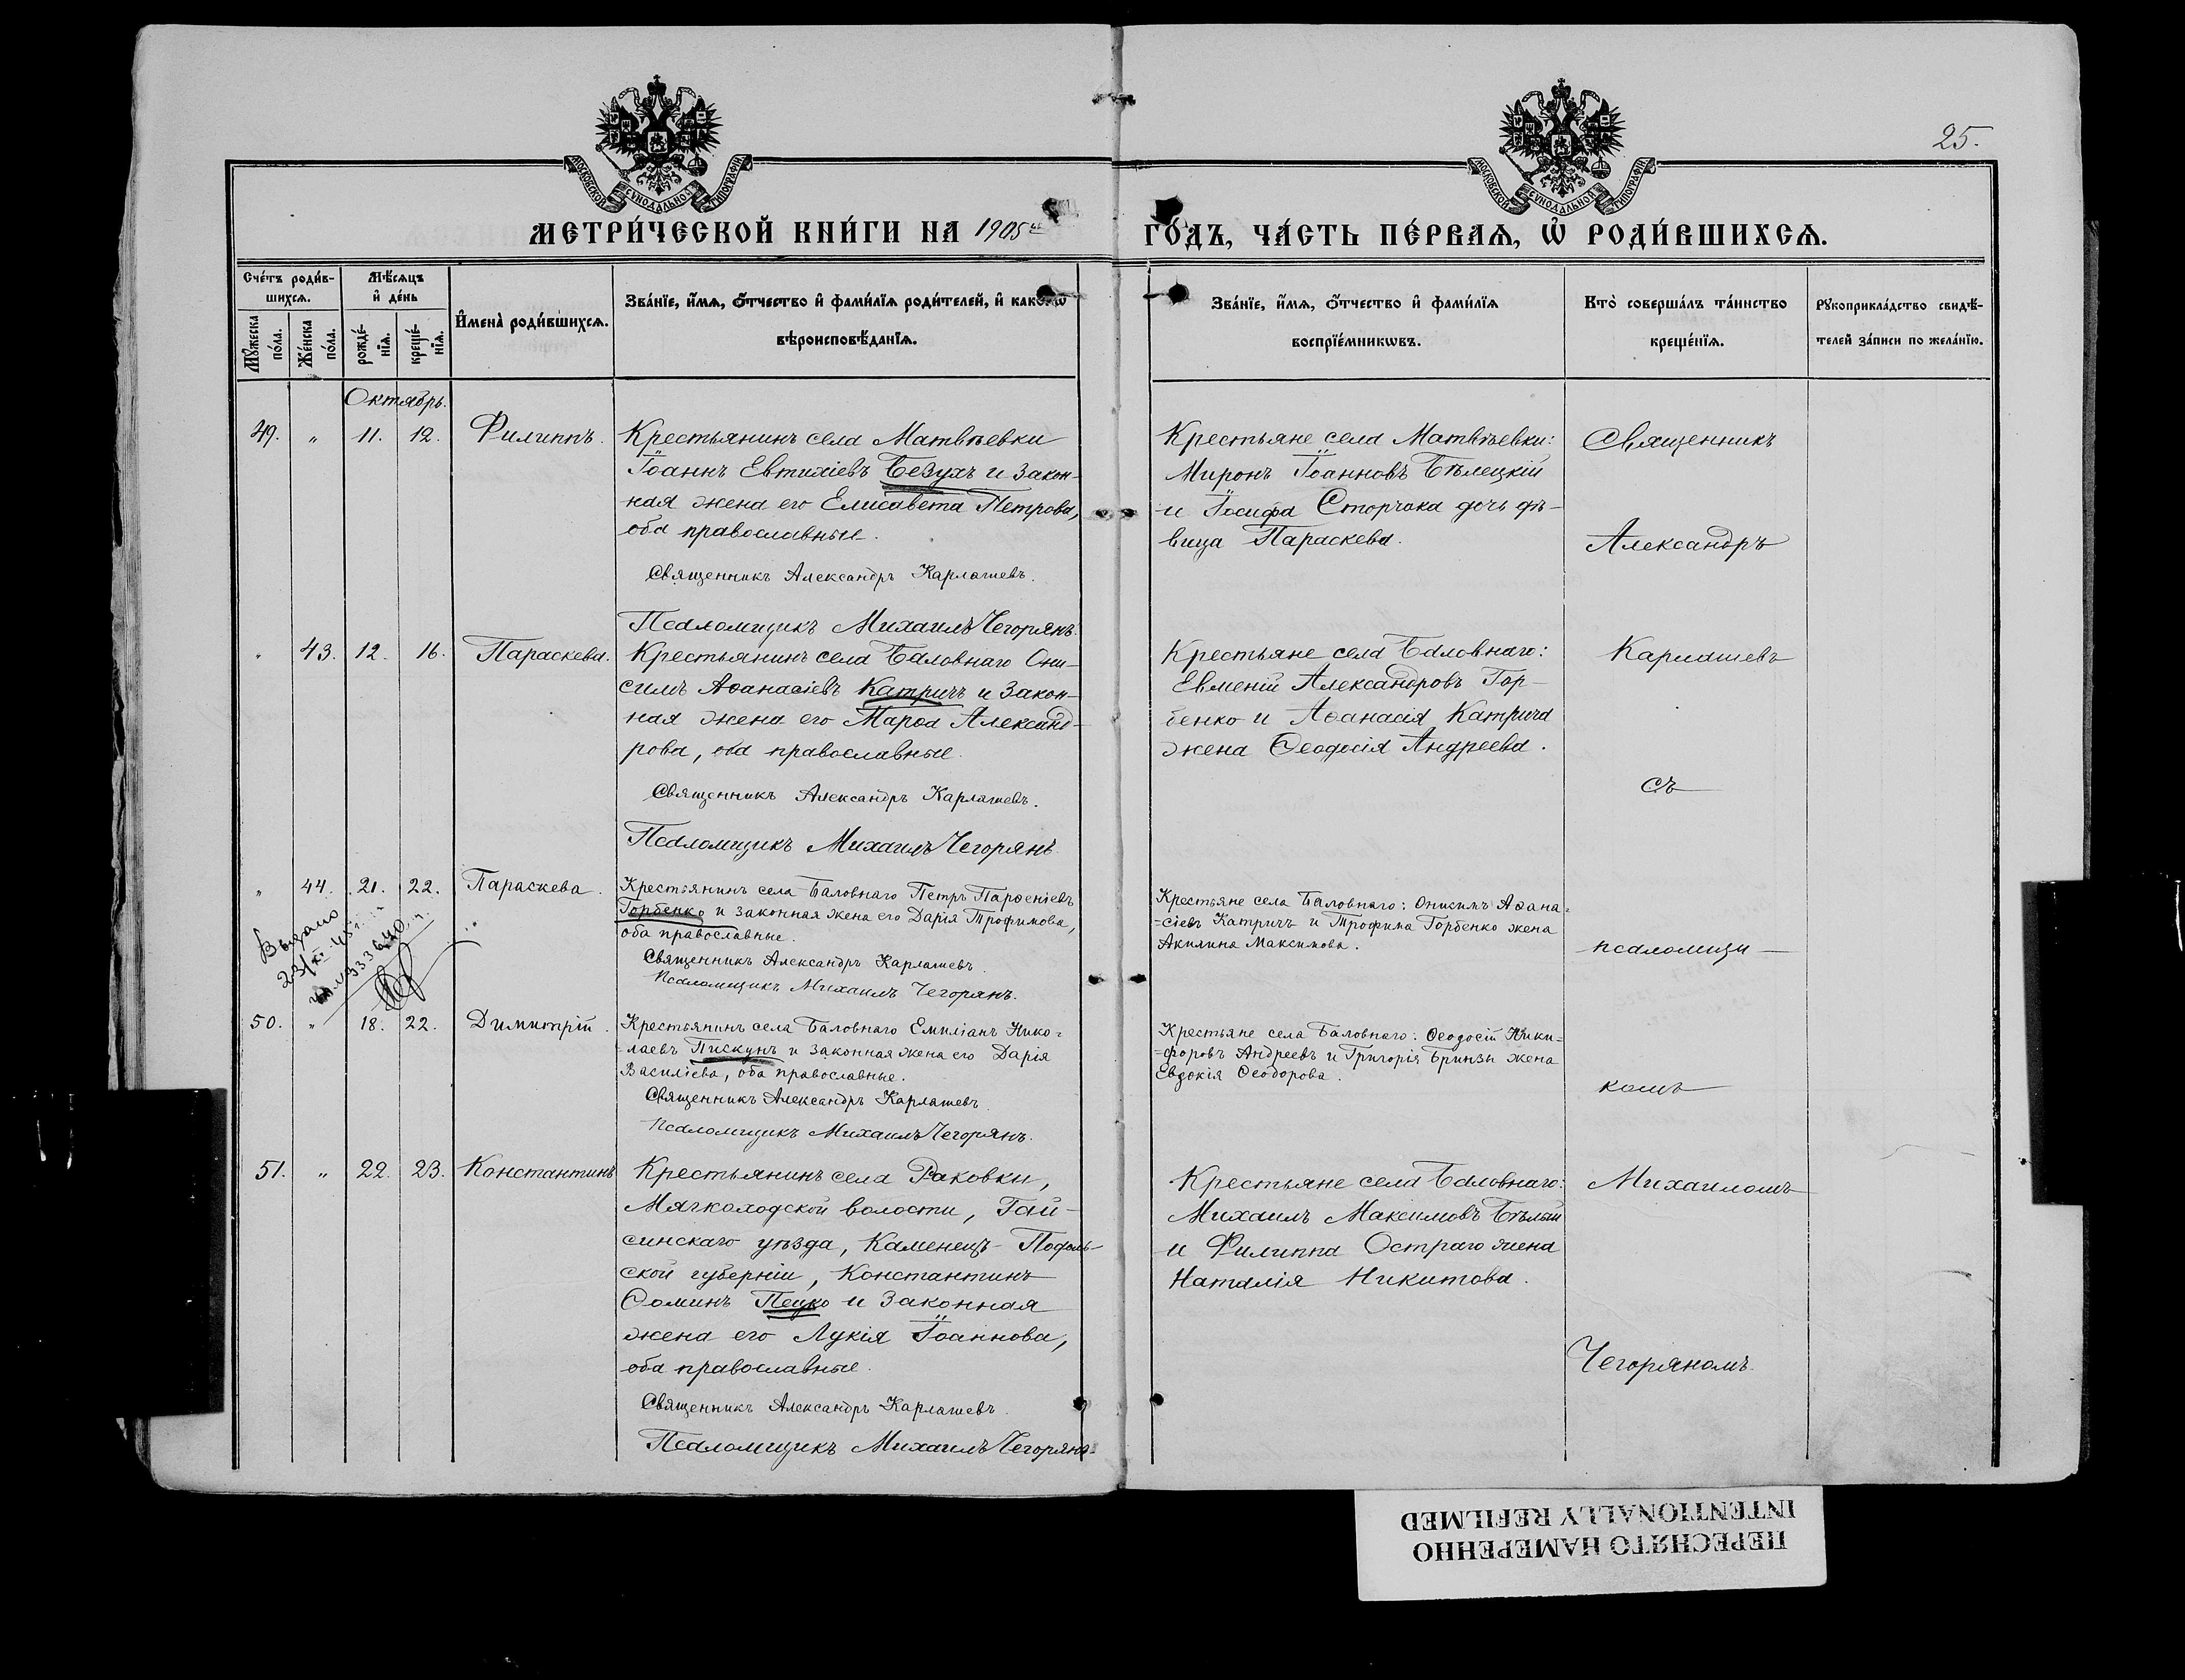 25.
МОСКОВСКОЙ СУНОДАЛЬНОЙ ТИПОГРАФІИ
МОСКОВСКОЙ СУНОДАЛЬНОЙ ТИПОГРАФІИ
МЕТРИ́ЧЕСКОЙ КНИ́ГИ НА 1905
ГО́ДЪ, ЧА́СТЬ ПЕ́РВАѦ, Ѡ҆ РОДИ́ВШИХСѦ.
Сче́тъ роди́в-
шихсѧ.
Мꙋ́жеска
по́ла.
Же́нска
по́ла.
Мѣ́сѧцъ
и҆ де́нь
рожде́-
нїѧ.
креще́-
нїѧ.
И҆мена̀ роди́вшихсѧ.
Зва́нїе, и҆́мѧ, ѻ҆́тчество и҆ фами́лїѧ роди́телей, и҆ како́гѡ
вѣроисповѣ́данїѧ.
Зва́нїе, и҆́мѧ, ѻ҆́тчество и҆ фами́лїѧ
воспрїе́мникѡвъ.
Кто̀ соверша́лъ та́инство
креще́нїѧ.
Рꙋкоприкла́дство свидѣ́-
телей за́писи по жела́нїю.
Октябрь.
49. " 11. 12. Филиппъ.
Крестьянинъ села Матвѣевки
Іоаннъ Евтихіевъ Безухъ и закон-
ная жена его Елисавета Петрова,
оба православные.
Священникъ Александръ Карлашевъ.
Псаломщикъ Михаилъ Чегорянъ.
Крестьяне села Матвѣевки:
Миронъ Іоанновъ Бѣлецкій
и Іосифа Сторчака дочь дѣ-
вица Параскева.
" 43. 12. 16. Параскева.
Крестьянинъ села Баловнаго Они-
симъ Аѳанасіевъ Катричъ и закон-
ная жена его Марѳа Александ-
рова, оба православные.
Священникъ Александръ Карлашевъ.
Псаломщикъ Михаилъ Чегорянъ.
Крестьяне села Баловнаго:
Евменій Александровъ Гор-
бенко и Аѳанасія Катрича
жена Ѳеодосія Андреева.
" 44. 21. 22. Параскева.
Крестьянинъ села Баловнаго Петръ Парѳеніевъ
Горбенко и законная жена его Дарія Трофимова,
оба православные.
Священникъ Александръ Карлашевъ.
Псаломщикъ Михаилъ Чегорянъ.
Крестьяне села Баловнаго: Онисимъ Аѳана=
=сіевъ Катричъ и Трофима Горбенко жена
Акилина Максимова.
Выдано
23/XI-45г.
50. " 18. 22. Димитрій.
Крестьянинъ села Баловнаго Емиліанъ Нико=
=лаевъ Пискунъ и законная жена его Дарія
Василіева, оба православные.
Священникъ Александръ Карлашевъ.
Псаломщикъ Михаилъ Чегорянъ.
Крестьяне села Баловнаго: Ѳеодосій Ники=
=форовъ Андреевъ и Григорія Бринзы жена
Евдокія Ѳеодорова.
51. " 22. 23. Константинъ
Крестьянинъ села Раковки,
Мягкоходской волости, Гай-
синскаго уѣзда, Каменецъ-Подоль-
ской губерніи, Константинъ
Ѳоминъ Пецко и законная
жена его Лукія Іоаннова,
оба православные.
Священникъ Александръ Карлашевъ.
Псаломщикъ Михаилъ Чегорянъ.
Крестьяне села Баловнаго:
Михаилъ Максимовъ Бѣлый
и Филиппа Остраго жена
Наталія Никитова.
Священникъ
Александръ
Карлашевъ
съ
псаломщи-
комъ
Михаиломъ
Чегоряномъ.
ПЕРЕСНЯТО НАМЕРЕННО
INTENTIONALLY REFILMED